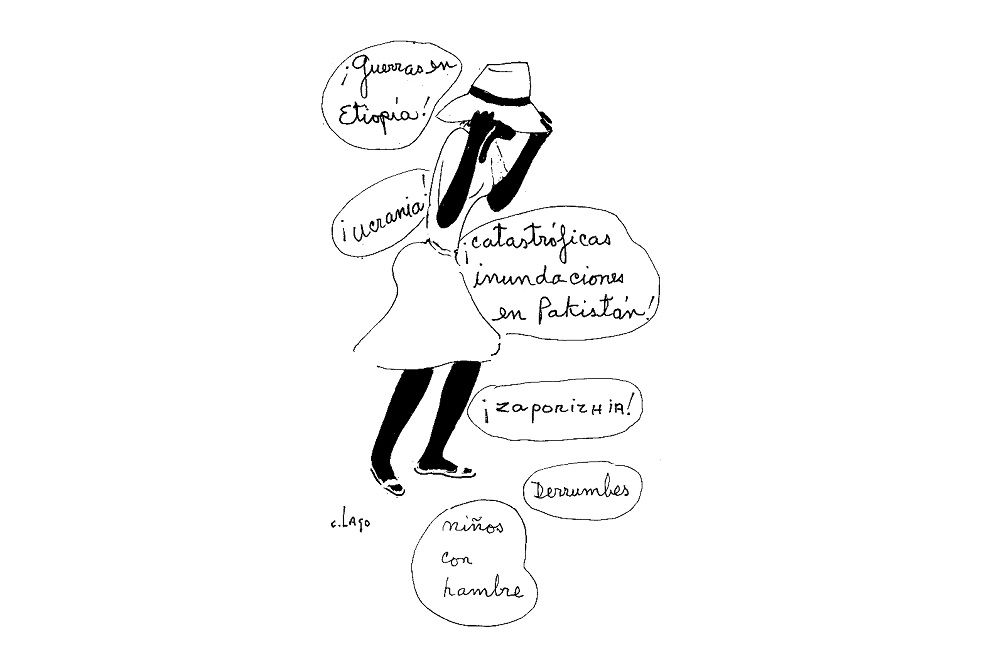 ¡Guerras en
Etiopía!
¡Ucrania!
¡catastróficas
inundaciones
en Pakistán!
¡ZAPORIZHIA!
Derrumbes
c. LAgo
niños
con
hambre